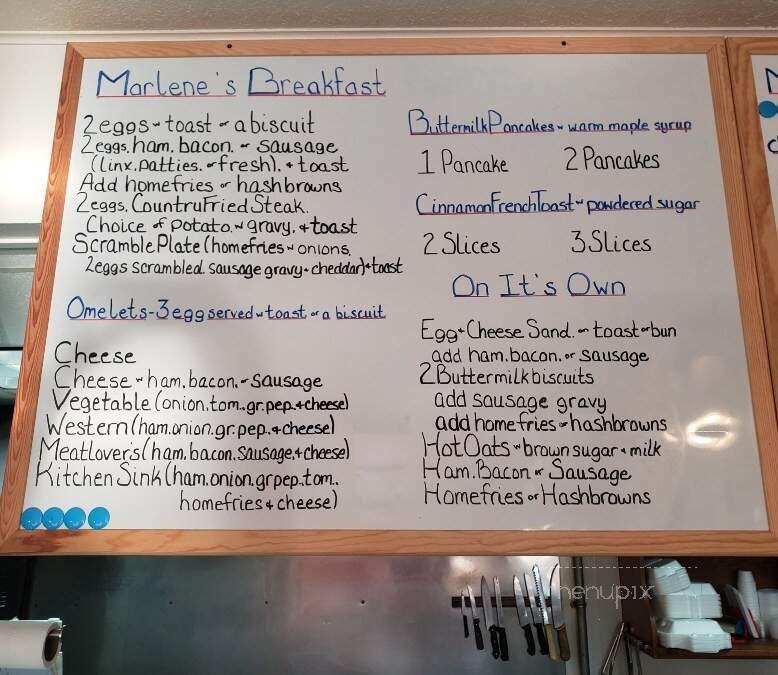 Marlene's Breakfast
2 eggs w toast or a biscuit
2 eggs. ham. bacon. or sausage
(linx. patties. or fresh). + toast
Add homefries or hashbrowns
2 eggs. Country Fried Steak.
Choice of Potato. w gravy. + toast
Scramble Plate (homefries w onions.
2 eggs scrambled. sausage gravy + cheddar) + toast
Omelets - 3 egg served w toast or a biscuit
Cheese
Cheese w ham. bacon. or sausage
Vegetable (onion. tom. gr. pep. + cheese)
Western (ham. onion. gr. pep. + cheese)
Meatlover's (ham. bacon. sausage. + cheese)
Kitchen Sink (ham. onion. gr pep. tom..
homefries + cheese)
Buttermilk Pancakes w warm maple syrup
1 Pancake 2 Pancakes
Cinnamon French Toast w powdered sugar
2 Slices 3 Slices
On It's Own
Egg + Cheese Sand. on toast or bun
add ham. bacon. or sausage
2 Buttermilk biscuits
add sausage gravy
add homefries or hashbrowns
Hot Oats w brown sugar + milk
Ham. Bacon or Sausage
Homefries or Hashbrowns
menupix